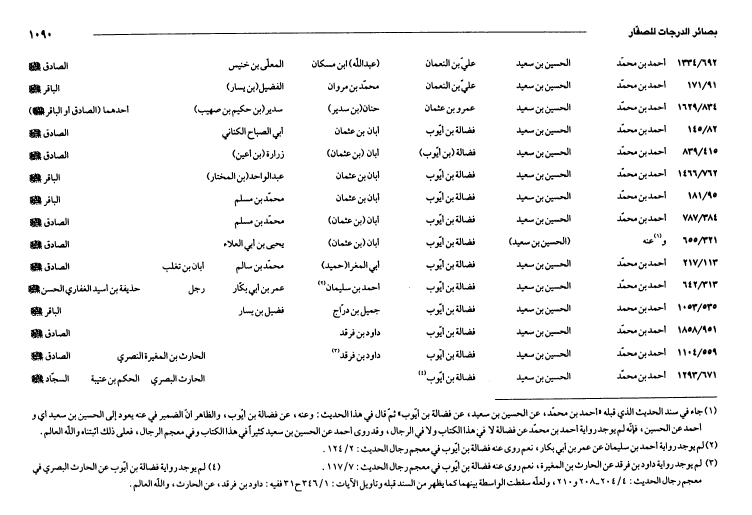 بصائر الدرجات للصفّار ١٠٩٠
١٣٣٤/٦٩٢ أحمد بن محمّد الحسين بن سعيد عليّ بن النعمان (عبدالله) ابن مسكان المعلّى بن خنيس الصادق
١٧١/٩١ أحمد بن محمّد الحسين بن سعيد عليّ بن النعمان محمّد بن مروان الفضيل (بن يسار) الباقر
١٦٢٩/٨٣٤ أحمد بن محمّد الحسين بن سعيد عمرو بن عثمان حنان (بن سدير) سدير (بن حكيم بن صهيب) أحدهما (الصادق أو الباقر )
١٤٥/٨٢ أحمد بن محمّد الحسين بن سعيد فضالة بن أيّوب أبان بن عثمان أبي الصباح الكناني الصادق
٨٣٩/٤١٥ أحمد بن محمّد الحسين بن سعيد فضالة (بن أيّوب) أبان (بن عثمان) زرارة (بن أعين) الصادق
١٤٦٦/٧٦٢ أحمد بن محمّد الحسين بن سعيد فضالة بن أيّوب أبان بن عثمان عبدالواحد (بن المختار) الباقر
١٨١/٩٥ أحمد بن محمّد الحسين بن سعيد فضالة بن أيّوب أبان بن عثمان محمّد بن مسلم الباقر
٧٨٧/٣٨٤ أحمد بن محمّد الحسين بن سعيد فضالة بن أيّوب أبان (بن عثمان) محمّد بن مسلم الصادق
٦٥٥/٣٢١ و(١)عنه (الحسين بن سعيد) فضالة بن أيّوب أبان (بن عثمان) يحيى بن أبي العلاء الصادق
٢١٧/١١٣ أحمد بن محمّد الحسين بن سعيد فضالة بن أيّوب أبي المغرا (حميد) محمّد بن سالم أبان بن تغلب الصادق
٦٤٢/٣١٣ أحمد بن محمّد الحسين بن سعيد فضالة بن أيّوب أحمد بن سليمان(٢) عمر بن أبي بكّار رجل حذيفة بن أسيد الغفاري الحسن
١٠٥٣/٥٣٥ أحمد بن محمّد الحسين بن سعيد فضالة بن أيّوب جميل بن درّاج فضيل بن يسار الباقر
١٨٥٨/٩٥١ أحمد بن محمّد الحسين بن سعيد فضالة بن أيّوب داود بن فرقد الصادق
١١٠٤/٥٥٩ أحمد بن محمّد الحسين بن سعيد فضالة بن أيّوب داود بن فرقد(٣) الحارث بن المغيرة النصري الصادق
١٢٩٣/٦٧١ أحمد بن محمّد الحسين بن سعيد فضالة بن أيّوب(٤) الحارث البصري الحكم بن عتيبة السجّاد
(١) جاء في سند الحديث الذي قبله «أحمد بن محمّد، عن الحسين بن سعيد، عن فضالة بن أيّوب» ثمّ قال في هذا الحديث : وعنه، عن فضالة بن أيّوب، والظاهر انّ الضمير في عنه يعود إلى الحسين بن سعيد أي و
أحمد عن الحسين، فإنّه لم يوجد رواية أحمد بن محمّد عن فضالة لا في هذا الكتاب ولا في الرجال، وقد روى أحمد عن الحسين بن سعيد كثيراً في هذا الكتاب وفي معجم الرجال، فعلى ذلك أثبتناه والله العالم.
(٢) لم يوجد رواية أحمد بن سليمان عن عمر بن أبي بكار، نعم روى عنه فضالة بن أيّوب في معجم رجال الحديث : ١٢٤/٢ .
(٣) لم يوجد رواية داود بن فرقد عن الحارث بن المغيرة، نعم روى عنه فضالة بن أيّوب في معجم رجال الحديث : ١١٧/٧ . (٤) لم يوجد رواية فضالة بن أيّوب عن الحارث البصري في
معجم رجال الحديث : ٢٠٤/٤ ـ ٢٠٨ و٢١٠، ولعلّه سقطت الواسطة بينهما كما يظهر من السند قبله وتاويل الآيات : ٣٤٦/١ ح٣١ ففيه : داود بن فرقد، عن الحارث، والله العالم.